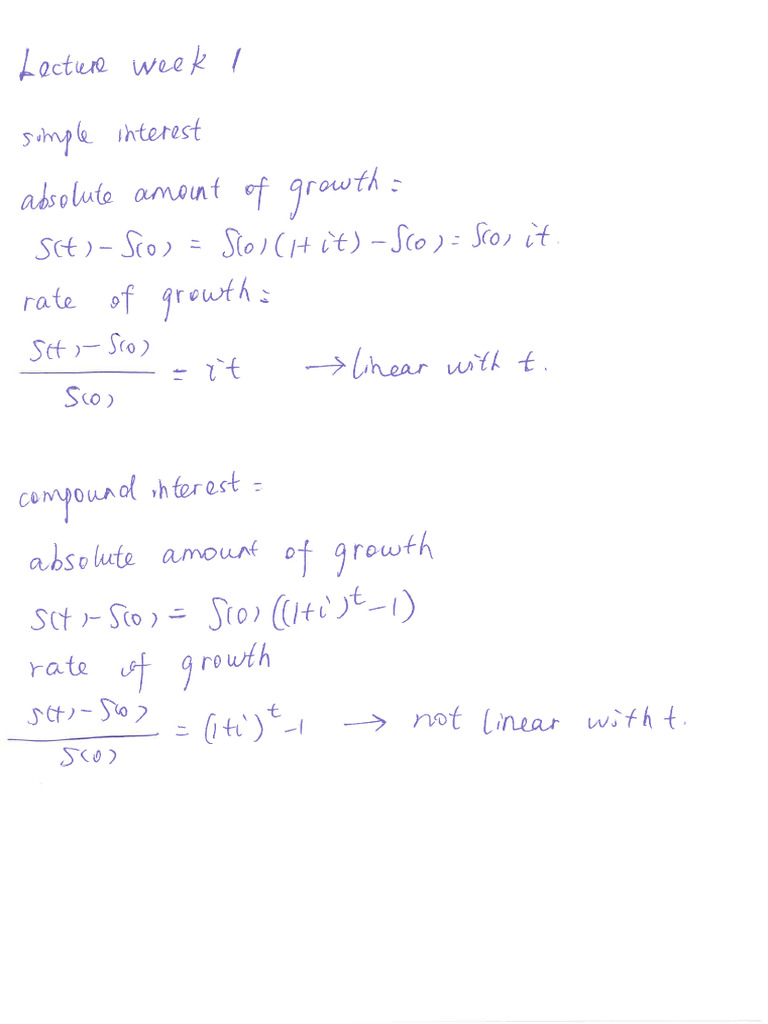 Lecture week 1
simple interest
absolute amount of growth:
S(t) - S(0) = S(0)(1+it) - S(0) = S(0) it.
rate of growth:
S(t) - S(0)
———
S(0)
= it → linear with t.
compound interest:
absolute amount of growth
S(t) - S(0) = S(0)((1+i)^t - 1)
rate of growth
S(t) - S(0)
———
S(0)
= (1+i)^t - 1 → not linear with t.